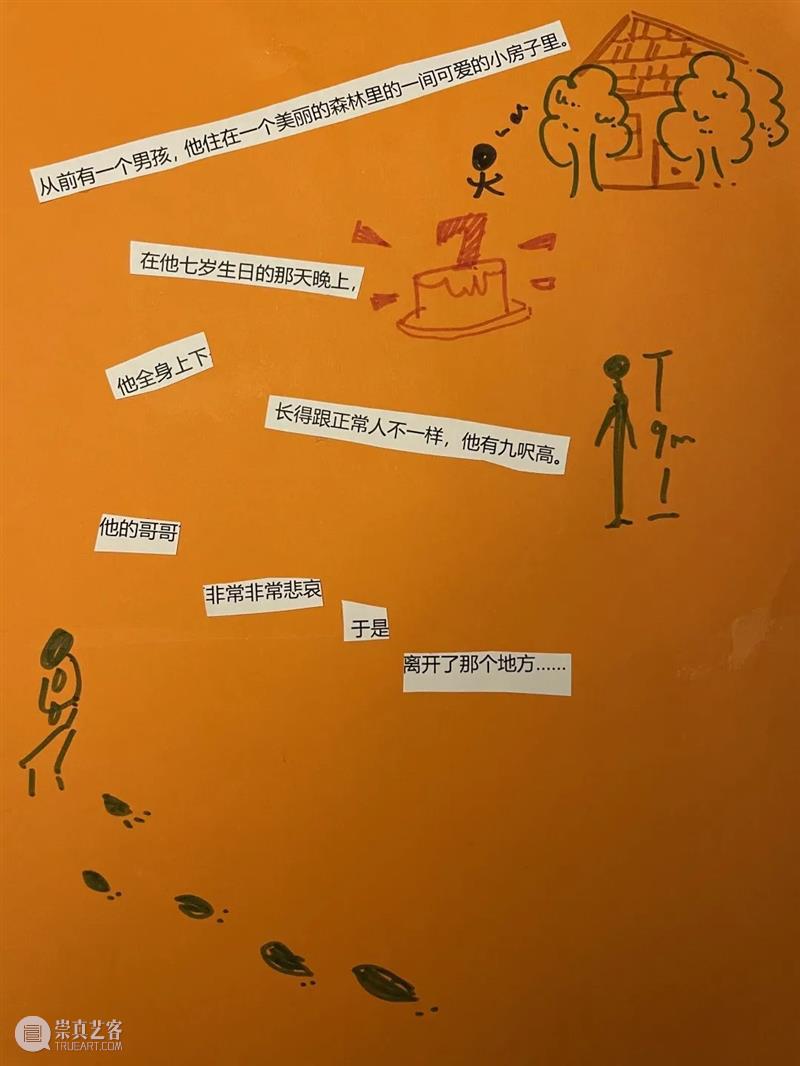 从前有一个男孩，他住在一个美丽的森林里的一间可爱的小房子里。
7
在他七岁生日的那天晚上，
他全身上下
长得跟正常人不一样，他有九呎高。
9m
他的哥哥
非常非常悲哀
于是
离开了那个地方……
崇真艺客
TRUEART.COM